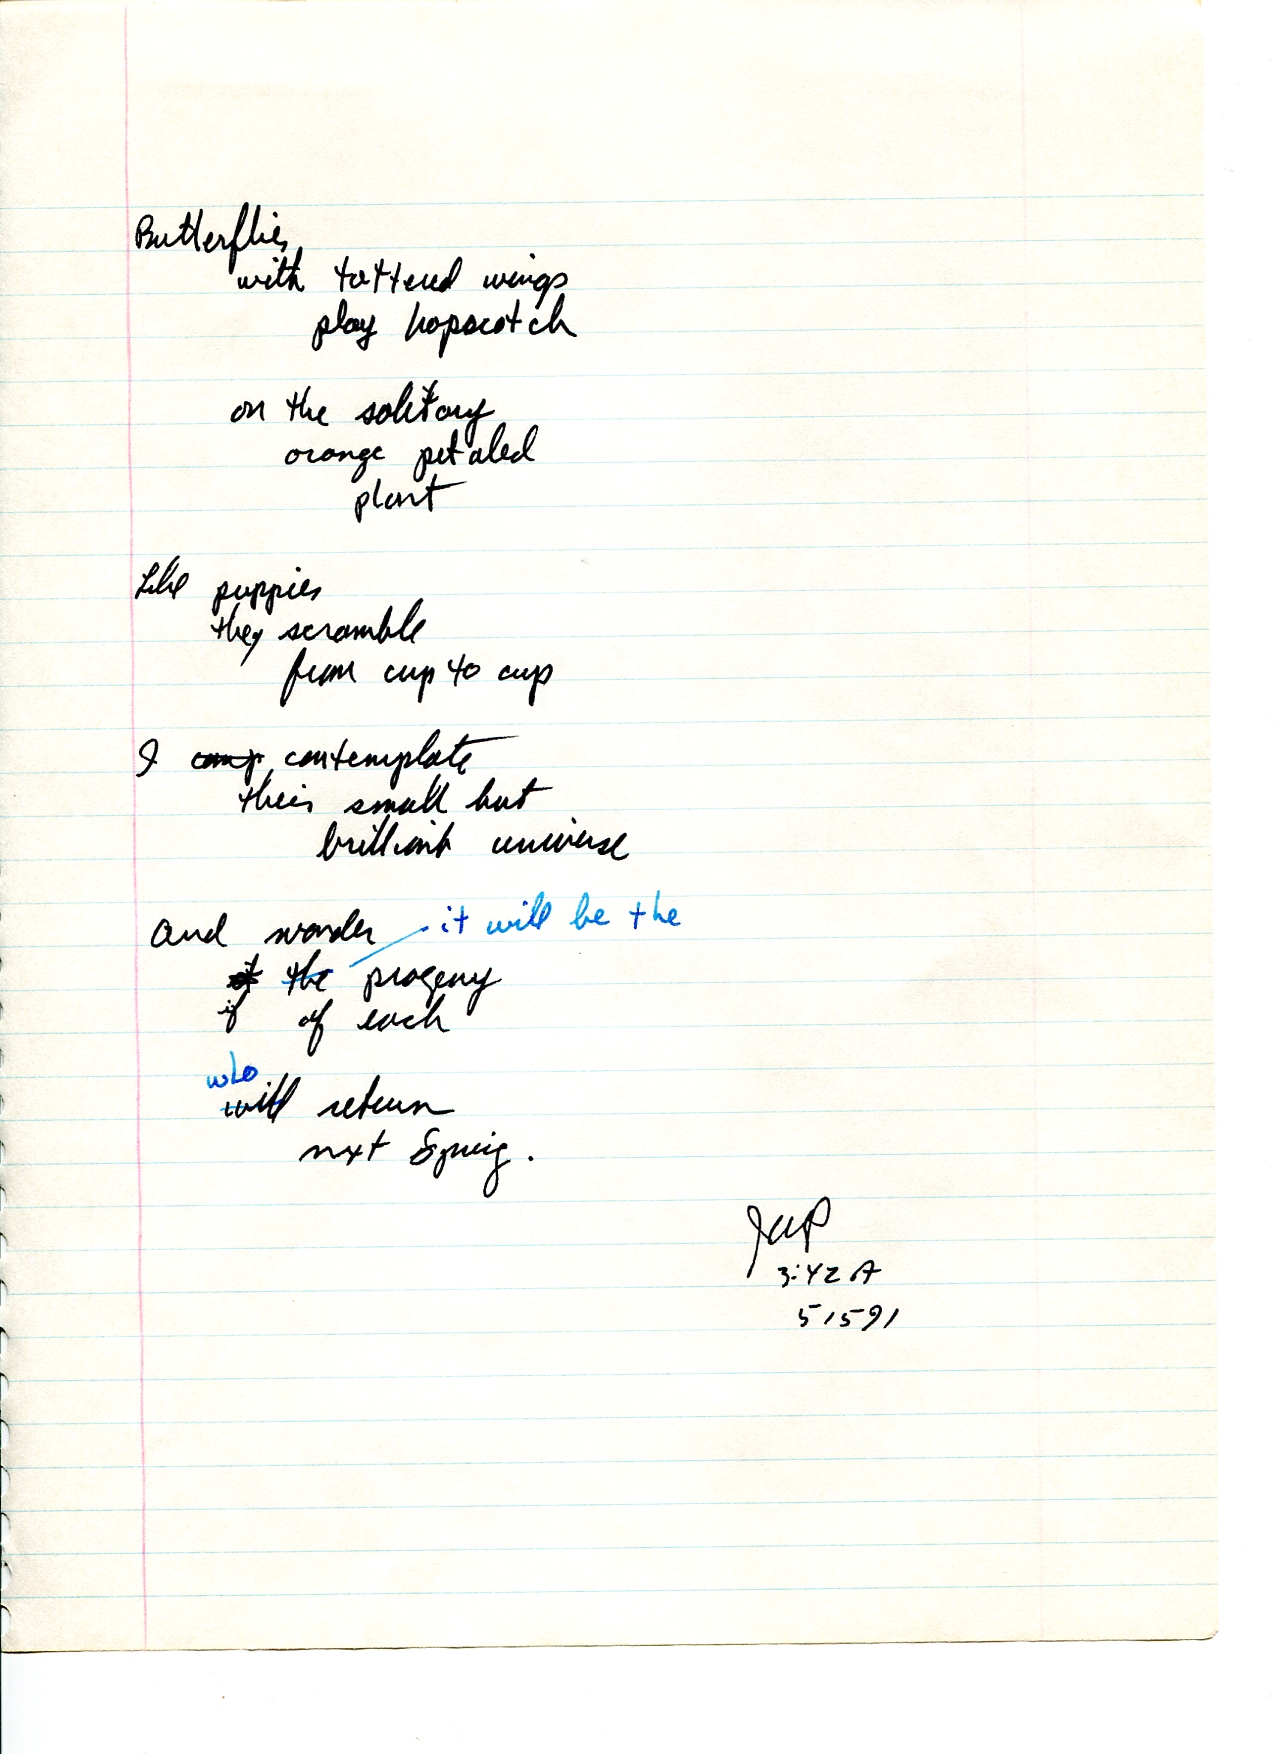 Butterflies
with tattered wings
play hopscotch
on the solitary
orange petaled
plant
Like puppies
they scramble
from cup to cup
I comp contemplate
their small but
brilliant universe
And wonder it will be the
the progeny
if of each
who
will return
next Spring.
JWP
3:42 A
51591